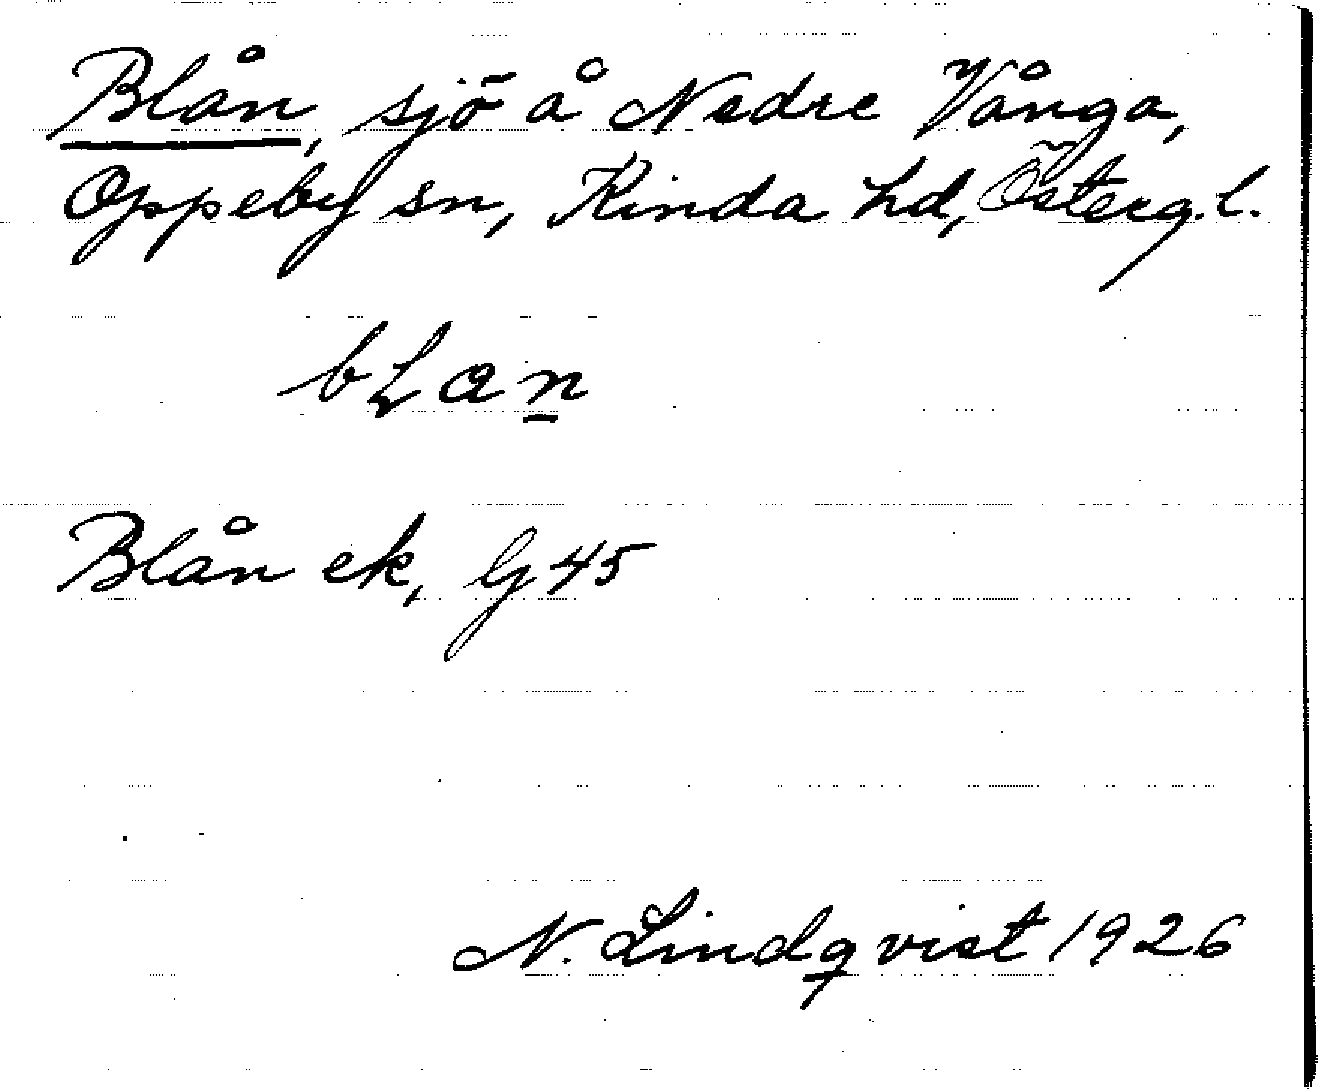 Blån, sjö å Nedre Vånga,
Oppeby sn, Kinda hd, Österg. l.
bLan
Blån ek, G 45
N. Lindqvist 1926